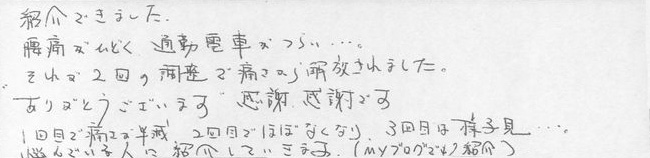 紹介できました.
腰痛がひどく 通勤電車がつらい….
それが2回の調整で痛さから解放されました。
ありがとうございます 感謝、感謝です
1回目で痛さが半減 2回目でほぼなくなり、3回目は様子見….
悩んでいる人に紹介していきます.(myブログでも紹介)